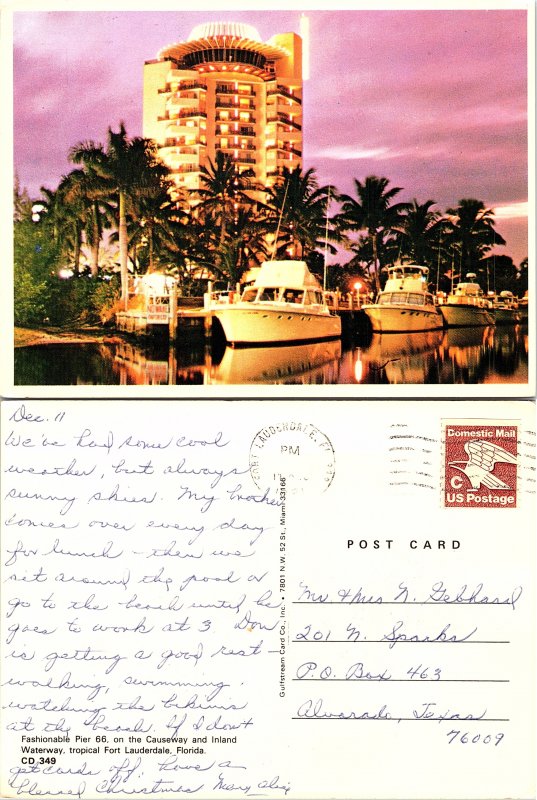 Dec. 11
We've had some cool
weather, but always
sunny skies. My brother
comes over every day
for lunch - then we
sit around the pool or
go to the beach until he
goes to work at 3. Don
is getting a good rest -
walking, swimming,
watching the bikinis
at the beach. If I don't
get cards off, have a
blessed Christmas
Fashionable Pier 66, on the Causeway and Inland
Waterway, tropical Fort Lauderdale, Florida.
CD 349
Gulfstream Card Co., Inc. • 7801 N.W. 52 St., Miami 33166
FORT LAUDERDALE, FL
PM
Domestic Mail
C
US Postage
POST CARD
Mr. & Mrs N. Gebhard
201 N. Sparks
P.O. Box 463
Alvarado, Texas
76009